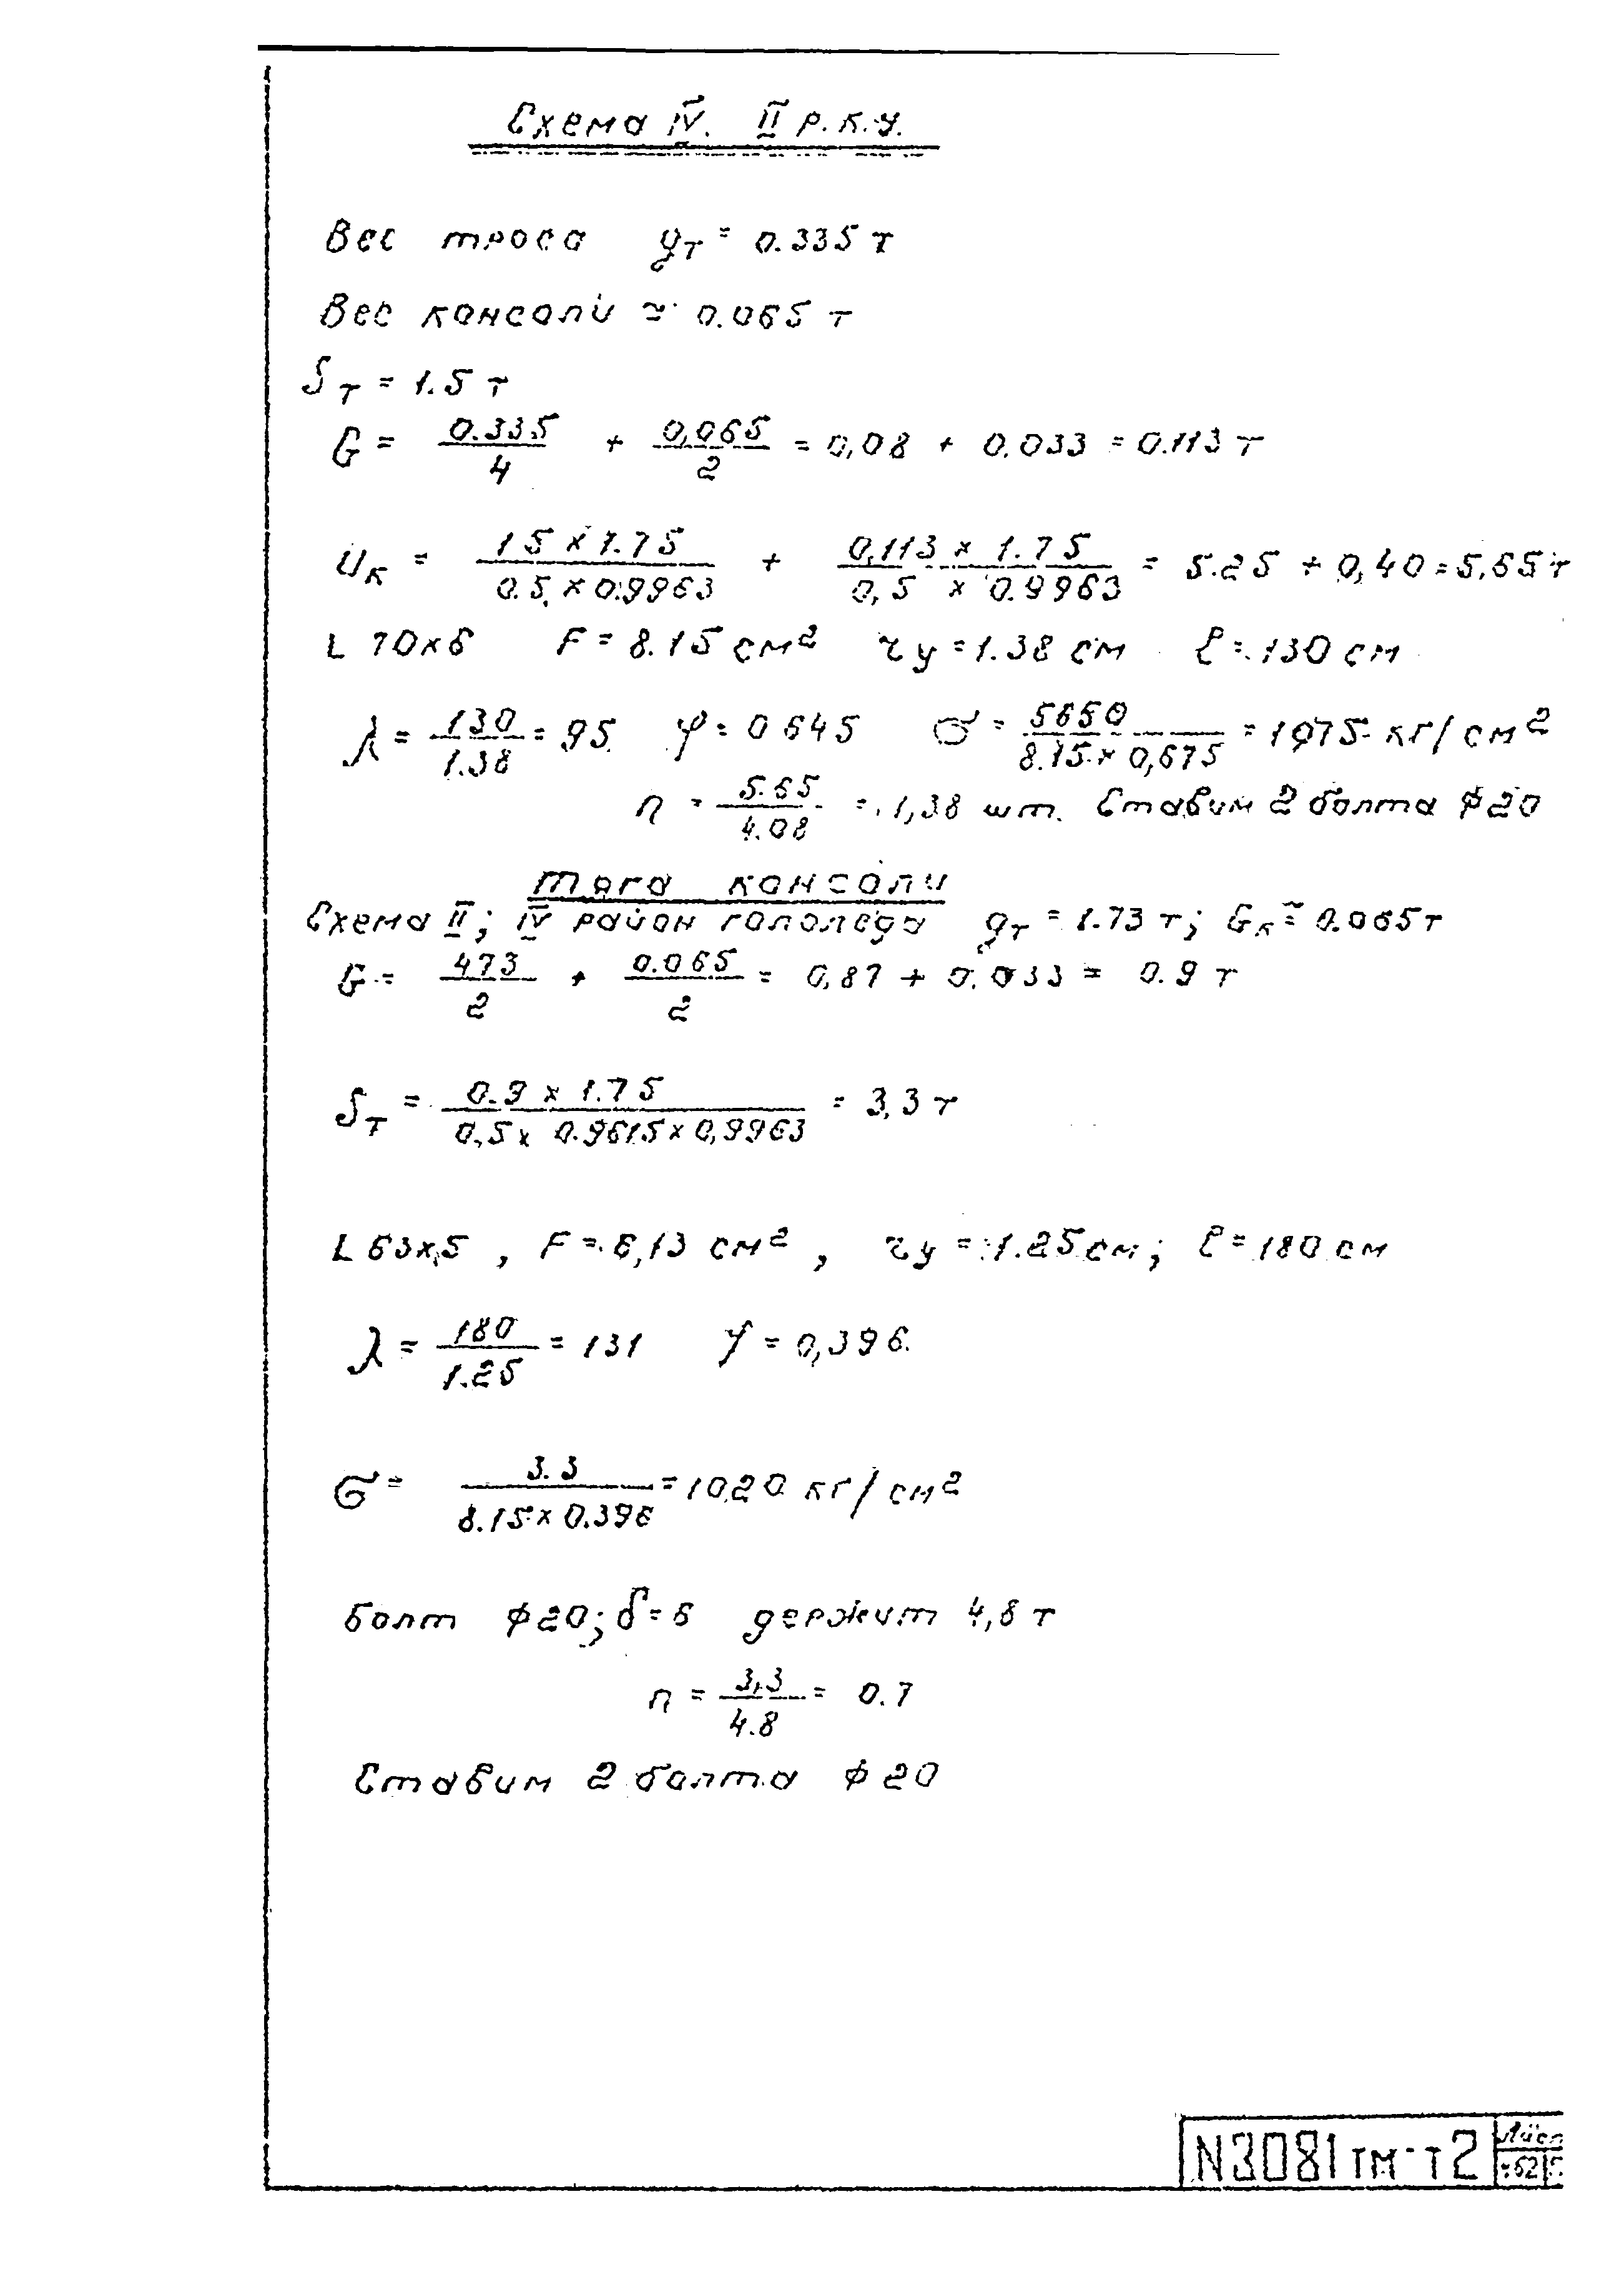 Схема IV. II р.к.у.
Вес троса gт = 0.335 т
Вес консоли ≃ 0.065 т
Sт = 1.5 т
G = 0.335/4 + 0,065/2 = 0,08 + 0.033 = 0.113 т
Uк = 1 5 × 1.75/0.5 × 0.9963 + 0,113 × 1.75/0,5 × 0.9963 = 5.25 + 0,40 = 5,65 т
L 70×6 F = 8.15 см² ry = 1.38 см ℓ = 130 см
λ = 130/1.38 = 95 φ = 0 645 σ = 5650/8.15 × 0,675 = 1075 кг/см²
n = 5.65/4.08 = 1,38 шт. Ставим 2 болта ф20
Тяга консоли
Схема II; IV район гололеда gт = 1.73 т; Gк ≃ 0.065 т
G = 173/2 + 0.065/2 = 0,87 + 0.033 = 0.9 т
Sт = 0.9 × 1.75/0,5 × 0.9615 × 0,9963 = 3,3 т
L 63×5 , F = 6,13 см² , ry = 1.25 см; ℓ = 180 см
λ = 180/1.25 = 131 φ = 0,396
σ = 3.3/8.15 × 0.396 = 1020 кг/см²
Болт ф20; δ = 6 держит 4,8 т
n = 3,3/4.8 = 0.7
Ставим 2 болта ф 20
N3081тм-т2
Лист
62